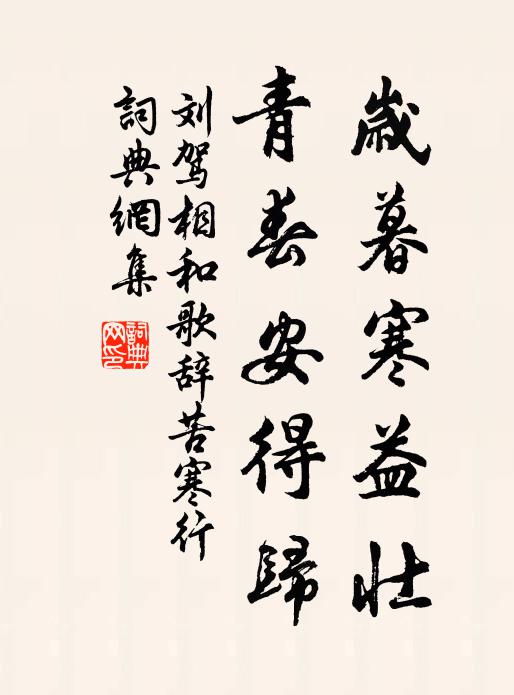 歲暮寒益壯
青春安得歸
刘驾相和歌辞苦寒行
詞典網集
詞典網印